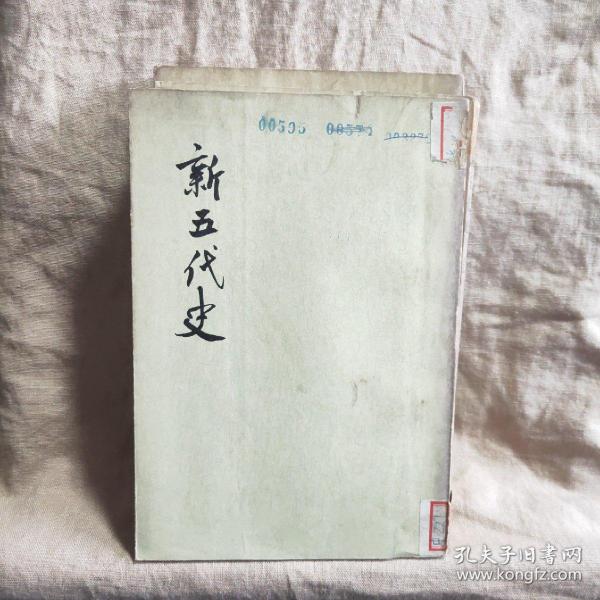 00595 00571
新五代史
孔夫子旧书网
www.kongfz.com